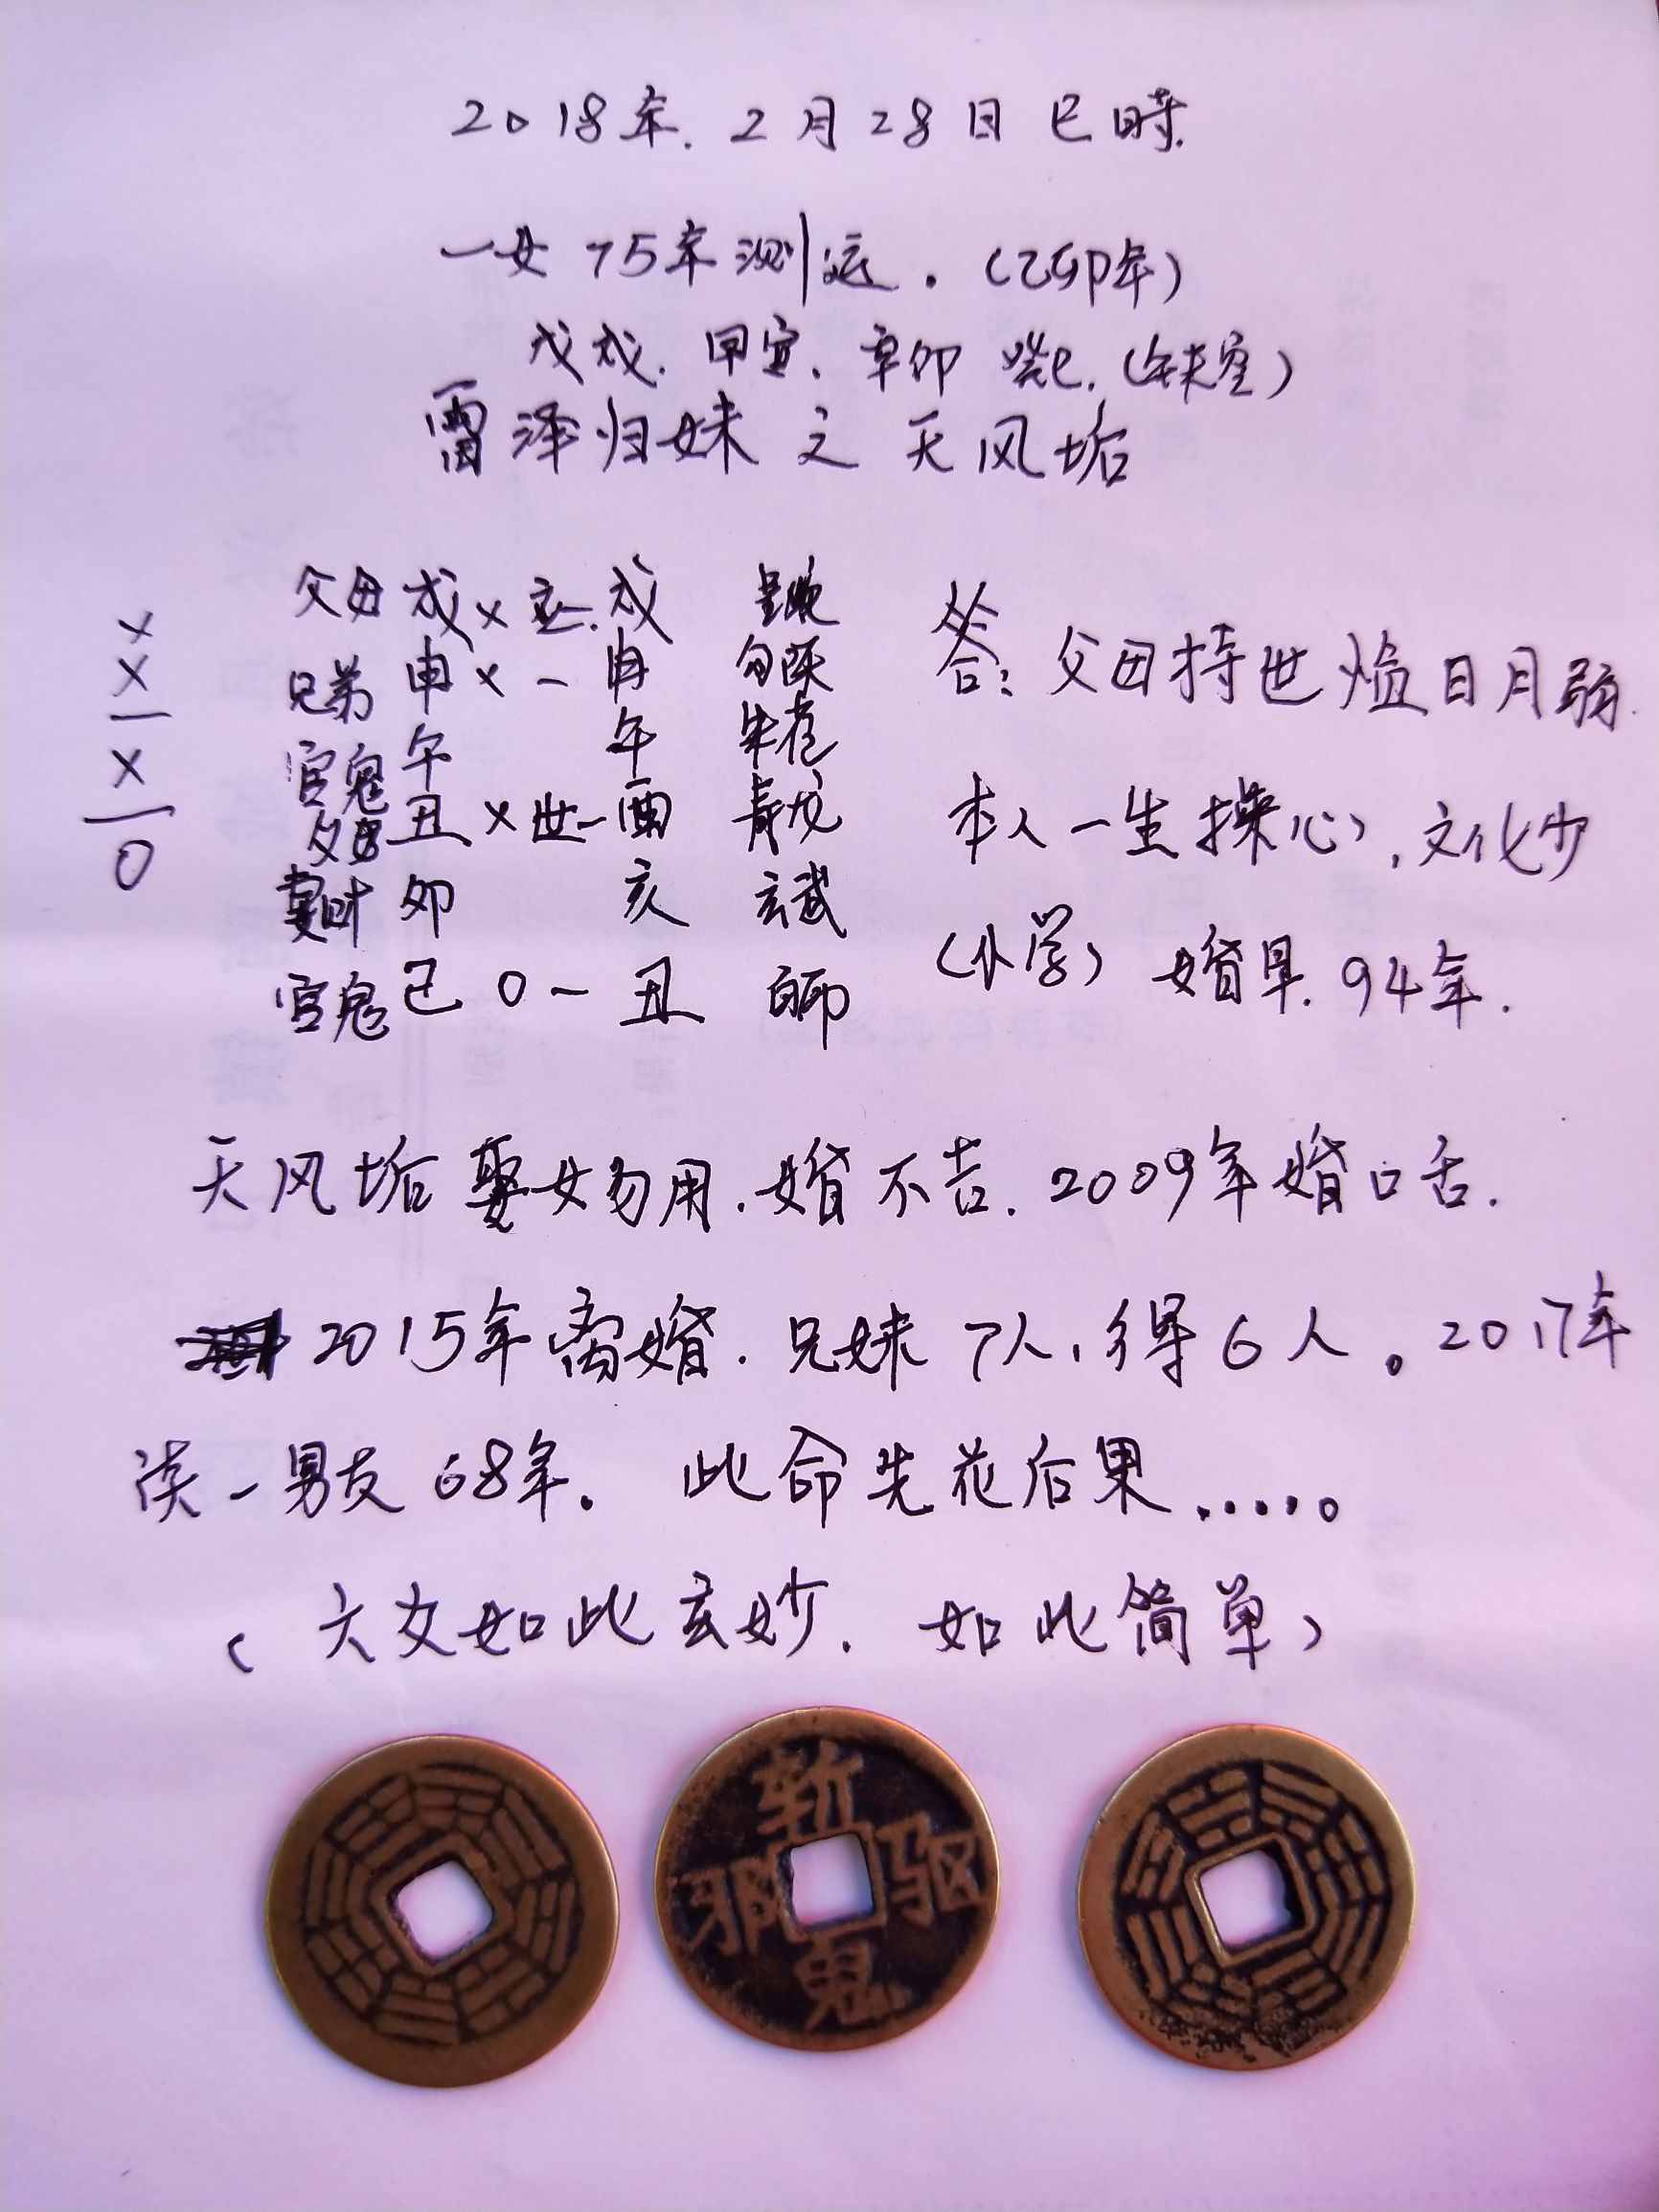 2018年.2月28日巳時.
一女75年测运.(乙卯年)
戊戌.甲寅.辛卯 癸巳.(午未空)
雷泽归妹之天风垢
父母 戌 × 应. 戌
兄弟 申 × 一 申 勾陈
官鬼 午 午 朱雀
父母 丑 × 世一酉 青龙
妻财 卯 亥 玄武
官鬼 巳 0 一 丑 白虎
×
×
一
×
一
0
答:父母持世临日月弱.
本人一生操心,文化少
(小学) 婚早.94年.
天风垢娶女勿用.婚不吉.2009年婚口舌.
2015年离婚.兄妹7人,得6人。2017年
谈一男友68年。此命先花后果.....。
(六爻如此玄妙.如此简单)
斩
邪 驱
鬼